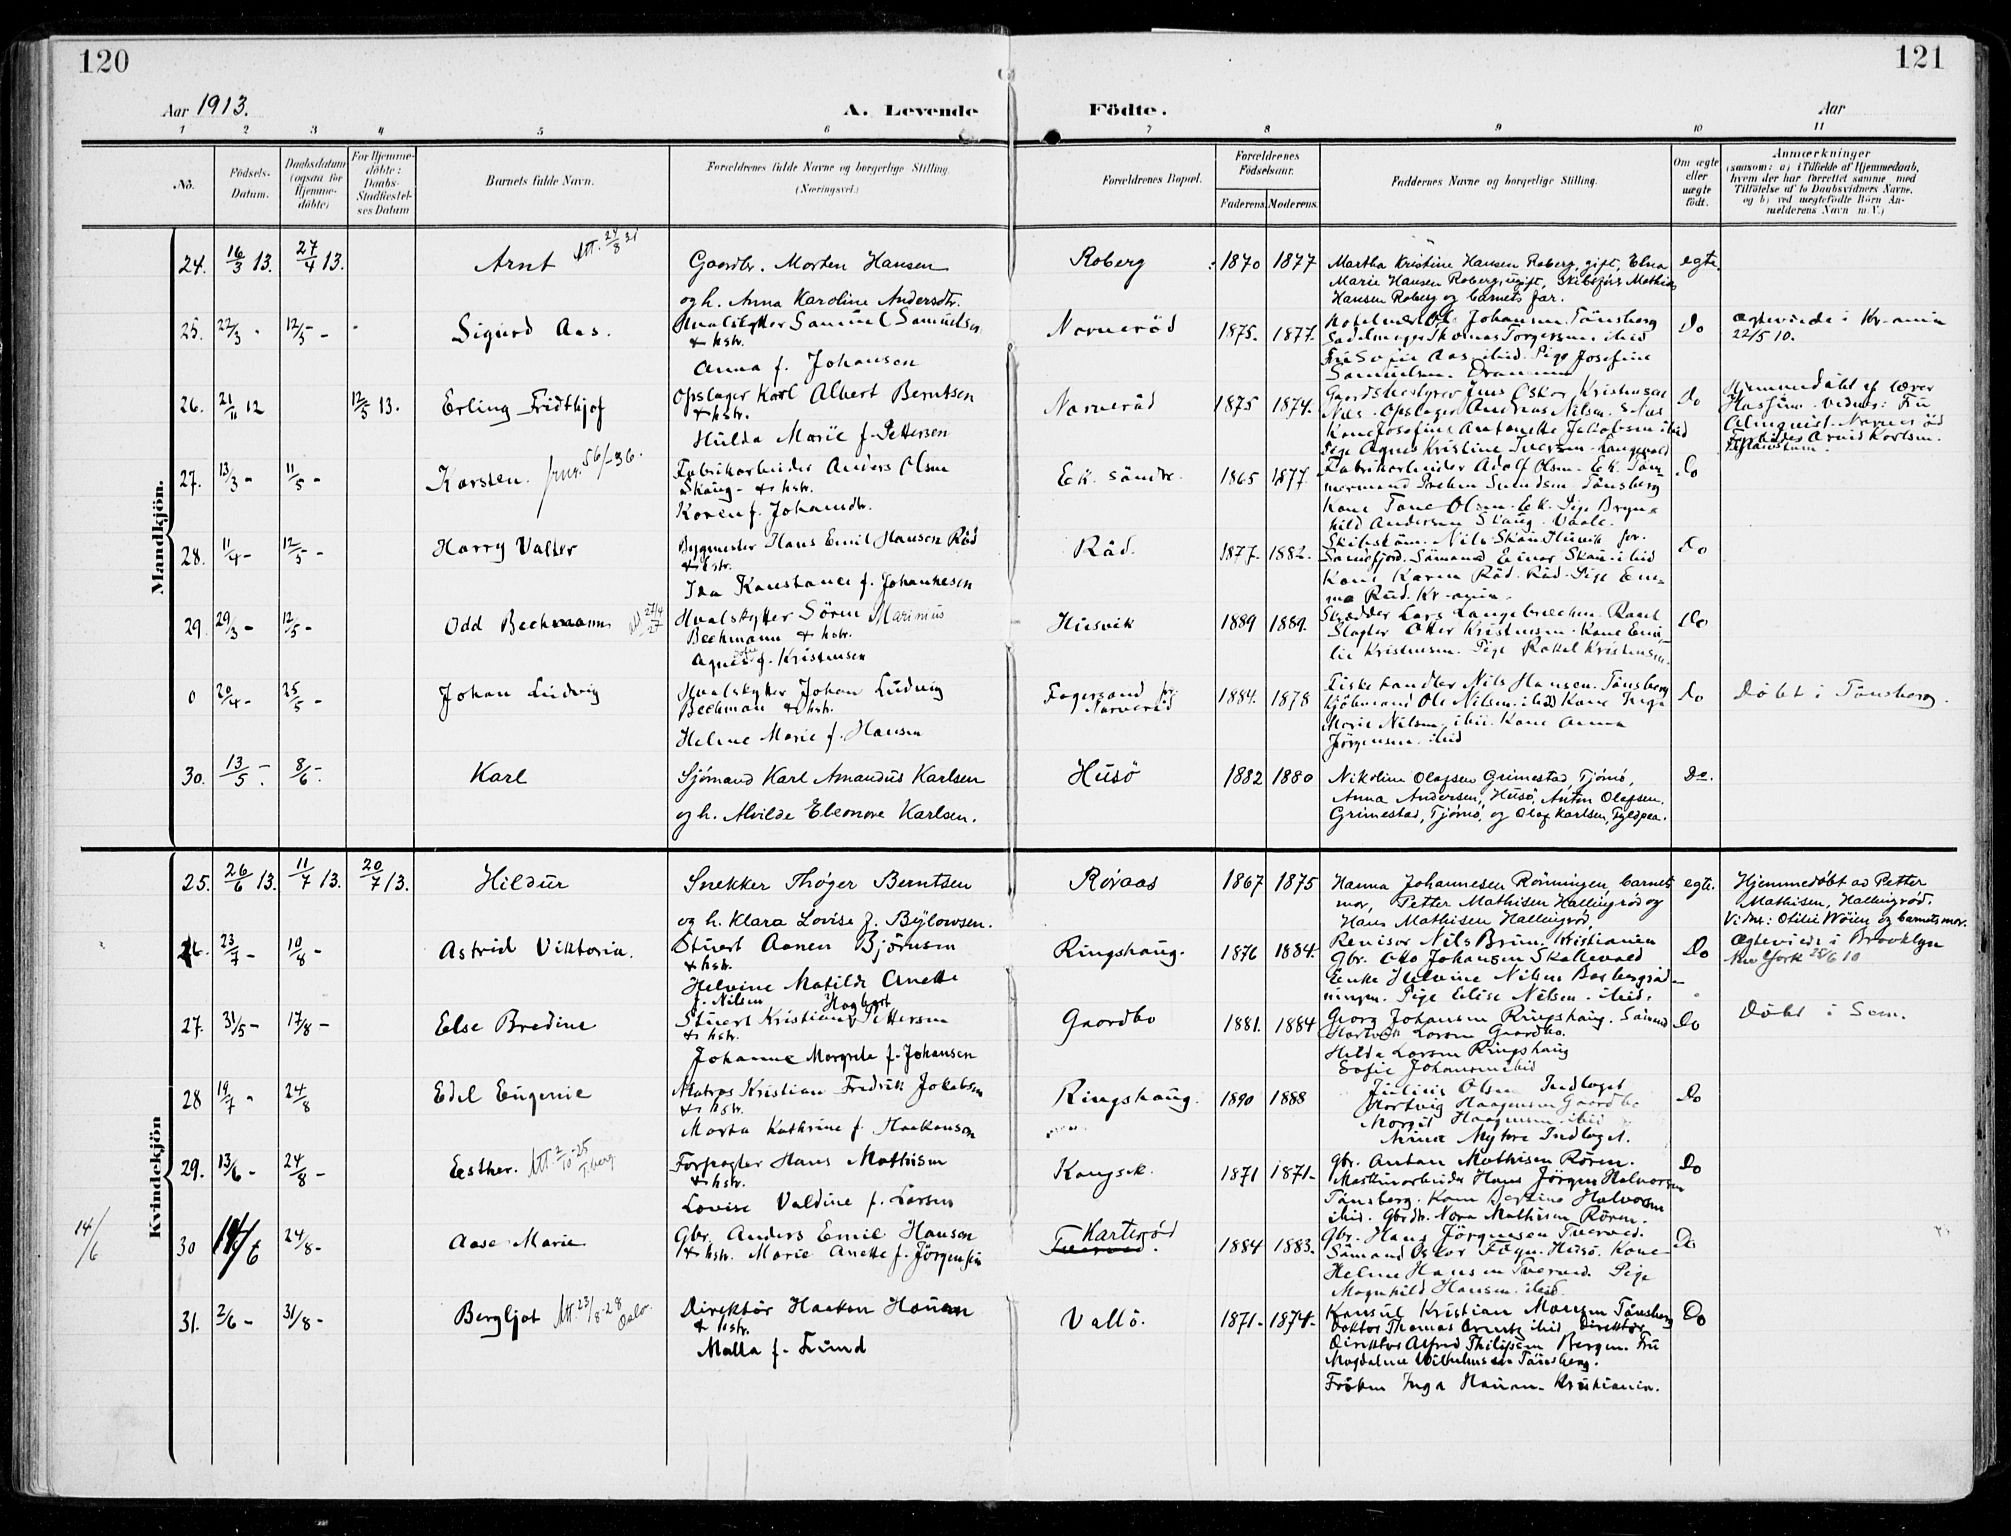 120
121
Aar 1913.
A. Levende
Födte.
Aar
1 2 3 4 5 6 7 8 9 10 11
No.
Födsels-Datum.
Daabsdatum (ogsaa for Hjemme-döbte)
For Hjemme-döbte: Daabs-Stadfæstel-ses Datum
Barnets fulde Navn.
Forældrenes fulde Navne og borgerlige Stilling.
(Næringsvei.)
Forældrenes Bopæl.
Forældrenes Födselsaar.
Faderens. Moderens.
Faddernes Navne og borgerlige Stilling.
Om ægte eller uægte födt.
Anmærkninger
(saasom: a) i Tilfælde af Hjemmedaab,
hvem der har forrettet samme med
Tilföielse af to Daabsvidners Navne,
og b) ved uægtefödte Börn An-
melderens Navn m. V.)
Mandkjön.
24. 16/3 13. 27/4 13. Arnt Att. 24/8 31
Gaardbr. Morten Hansen
og h. Anna Karoline Andersdtr.
Roberg 1870 1877
Martha Kristine Hansen Roberg, gift, Elna
Marie Hansen Roberg, ugift, Skibsförer Mathias
Hansen Roberg og barnets far.
egte.
25. 22/3 - 12/5 - Sigurd Aas.
Hvalskytter Samuel Samuelsen
& hstr.
Anna f. Johansen
Narverød 1875. 1877.
Johansen Tønsberg
Sadelmager Thomas Torgersen ibid
Fru Sofie Aas ibid. Pige Josefine
Samuelsen. Drammen
Do
Ægteviede i Kr-ania
22/5 10.
26. 21/11 12 12/5 13. Erling Fridthjof
Opslager Karl Albert Berntsen
& hstr.
Hulda Marie f. Pettersen
Narverød 1875 1874.
Gaardsbestyrer Jens Oskar Kristensen
Næs. Opslager Andreas Nilsen. S. Næs
Kone Josefine Antonette Jakobsen ibid
Pige Agnes Kristine Iversen
Do
Hjemmedøbt af Lærer
Vidner: Fru
Almquist. Narverød
27. 13/3 - 11/5 - Karsten. 56/-36.
Fabrikarbeider Anders Olsen
Skaug - & hstr.
Karen f. Johansdtr.
Ek. søndre. 1865 1877.
Fabrikarbeider Adolf Olsen. Ek. Tøm-
mermand Preben Svendsen Tønsberg
Kone Tone Olsen. Ek. Pige Bryn-
hild Andersen Skaug. Vaale.
Do
28. 11/4 - 12/5 - Harry Valter
Bygmester Hans Emil Hansen Råd
& hstr.
Ida Konstance f. Johannesen
Råd. 1877. 1882.
Sandefjord. Sømand Einar Skau ibid
Kone Karen Råd. Råd. Pige Em-
ma Rud. Kr-ania.
Do
29. 29/3 - 12/5 - Odd Beckmann 27/4 27
Hvalskytter Søren Marinius
Beckmann & hstr.
Agnes Sofie f. Kristensen
Husvik 1889 1889.
Skrædder Lars Langebrækken. Rael
Slagter Otter Kristensen. Kone Emi-
lie Kristensen. Pige Rakel Kristensen.
Do
0 20/4 - 25/5 - Johan Ludvig
Hvalskytter Johan Ludvig
Beckman & hstr.
Helene Marie f. Hansen
Fagersand pr.
Narverød 1884. 1878
Fiskehandler Nils Hansen. Tønsberg
Kjøbmand Ole Nilsen. ibid Kone Inga
Marie Nilsen. ibid. Kone Anna
Jørgensen. ibid
Do
Døbt i Tønsberg.
30. 13/5 - 8/6 - Karl
Sjömand Karl Amandus Karlsen
og h. Alvilde Eleonore Karlsen.
Husö 1882 1880
Nikoline Olafsen Grimestad, Tjömö,
Anna Andersen, Husö, Anton Olafsen.
Grimestad, Tjömö, og Olaf Karlsen, Fyldpaa.
Do.
Kvindekjön
25. 26/6 13. 11/7 13. 20/7 13. Hildur
Snekker Thöger Berntsen
og h. Klara Lovise f. Bylowsen.
Röraas 1867 1875
Hanna Johannesen Rönningen, barnets
mor, Petter Mathisen Hallingröd og
Hans Mathisen Hallingröd,
egte.
Hjemmedöbt av Petter
Mathisen, Hallingröd.
Vidner: Otilie Wöien og barnets mor.
26. 23/7 - 10/8 - Astrid Viktoria.
Stuert Aanen Bjørnsen
& hstr.
Helvine Matilde Anette
f. Nilsen
Ringshaug. 1876 1884.
Revisor Nils Brun. Kristiania
Gbr. Otto Johansen Skallevald
Enke Helvine Nilsen
ningen. Pige Elise Nilsen. ibid.
Do
Ægteviede i Brooklyn
New York 25/6 10
27. 31/5 - 17/8 - Else Bredine
Stuert Kristian Hagbart Pettersen
& hstr.
Johanne Margrete f. Johansen
Gaardbo 1881. 1884
Georg Johansen Ringshaug. Sømand
Hartvik Larsen Gaardbo.
Hilda Larsen Ringshaug
Sofie Johansen ibid
Do
Døbt i Sem.
28 19/7 - 24/8 Edel Eugenie
Matros Kristian Fredrik Jakobsen
& hstr.
Marta Kathrine f. Haakonsen
Ringshaug. 1890 1888
Julius Olsen Indlaget
Hartvig Haagensen Gaardbo
Margit Haagensen ibid
Anna Myhre Indlaget.
Do
29. 13/6 - 24/8 - Eesther. Att. 2/10-25 T.berg
Forpagter Hans Mathisen
& hstr.
Lovise Valdine f. Larsen
Kongsek. 1871 1871.
Gbr. Anton Mathisen Røren.
Maskinarbeider Hans Jørgen Halvorsen
Tønsberg. Kone Halvorsen
ibid. Gbrdtr. Nora Mathisen Røren.
Do
14/6
30 14/6 24/8 - Aase Marie
Gbr. Anders Emil Hansen
& hstr. Marie Anette f. Jørgensen
Karterød
Tverved. 1884 1883.
Gbr. Hans Jørgensen Tverved.
Sømand Oskar Fagn. Husø. Kone
Helene Hansen Tverved. Pige
Magnhild Hansen. ibid.
Do
31. 2/6 - 31/8 - Bergljot Att. 23/8-28 Oslo.
Direktør Haakon Hauan
& hstr.
Malla f. Lund
Vallø. 1871. 1874.
Konsul Kristian Monsen Tønsberg
Doktor Thomas Arntz ibid Direktør
Direktør Alfred Philipsen Bergen. Fru
Magdalene Wilhelmsen Tønsberg.
Frøken Inga Hauan. Kristiania.
Do